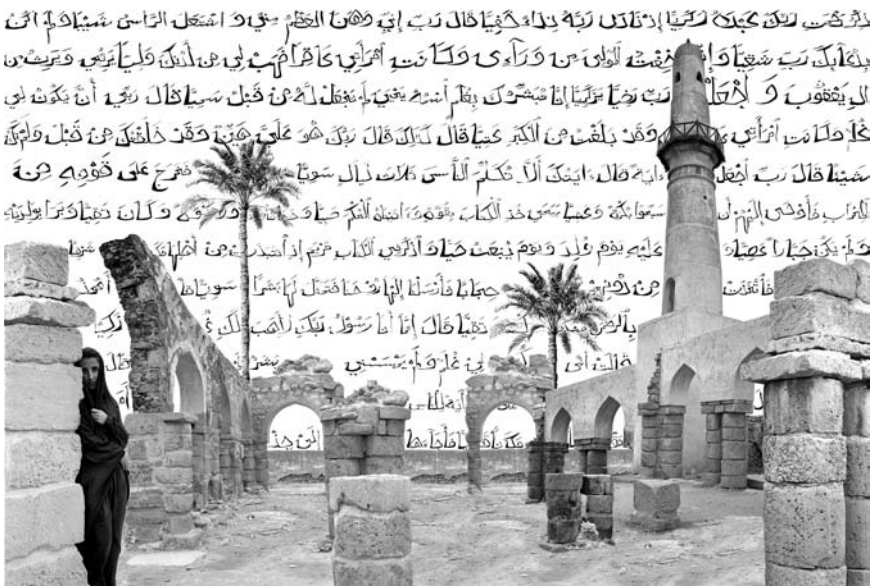 ذكر رحمت ربك عبده زكريا إذ نادى ربه نداء خفيا قال رب إني وهن العظم مني و اشتعل الرأس شيبا ولم أكن
بدعائك رب شقيا خفت الموالى من وراءى وكانت امرأتي عاقرا فهب لي من لدنك وليا يرثني ويرث من
ال يعقوب و اجعله رب رضيا يزكريا إنا نبشرك بغلم اسمه يحيى لم نجعل له من قبل سميا قال رب أنى يكون لي
غلم وكانت امرأتي وقد بلغت من الكبر عتيا قال كذلك قال ربك هو على هين وقد خلقتك من قبل ولم تك
شيئا قال رب اجعل ءاية قال ءايتك ألا تكلم الناس ثلاث ليال سويا فخرج على قومه من
المحراب فأوحى إليهم أن سبحوا بكرة وعشيا خذ الكتاب بقوة وءاتيناه الحكم صبيا وكان تقيا وبرا بولديه
ولم يكن جبارا عصيا عليه يوم ولد ويوم يبعث حيا واذكر في الكتاب مريم إذ انتبذت من أهلها
فاتخذت من دونهم حجابا فأرسلنا إليها روحنا فتمثل لها بشرا سويا أعوذ
تقيا قال إنا أنا رسول ربك لأهب لك زكيا
قالت أنى لي غلم ولم يمسسني بشر قال
ءاية للناس
إلى جذ